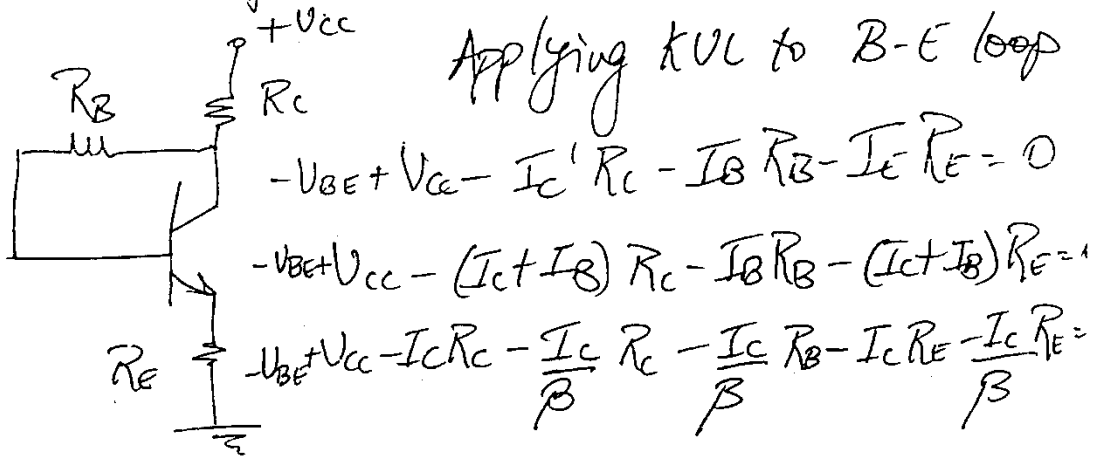 +VCC
Applying KVL to B-E loop
RB
RC
-VBE + VCC - IC' RC - IB RB - IE RE = 0
-VBE + VCC - (IC + IB) RC - IB RB - (IC + IB) RE =
RE
-VBE + VCC - IC RC - IC/β RC - IC/β RB - IC RE - IC/β RE =